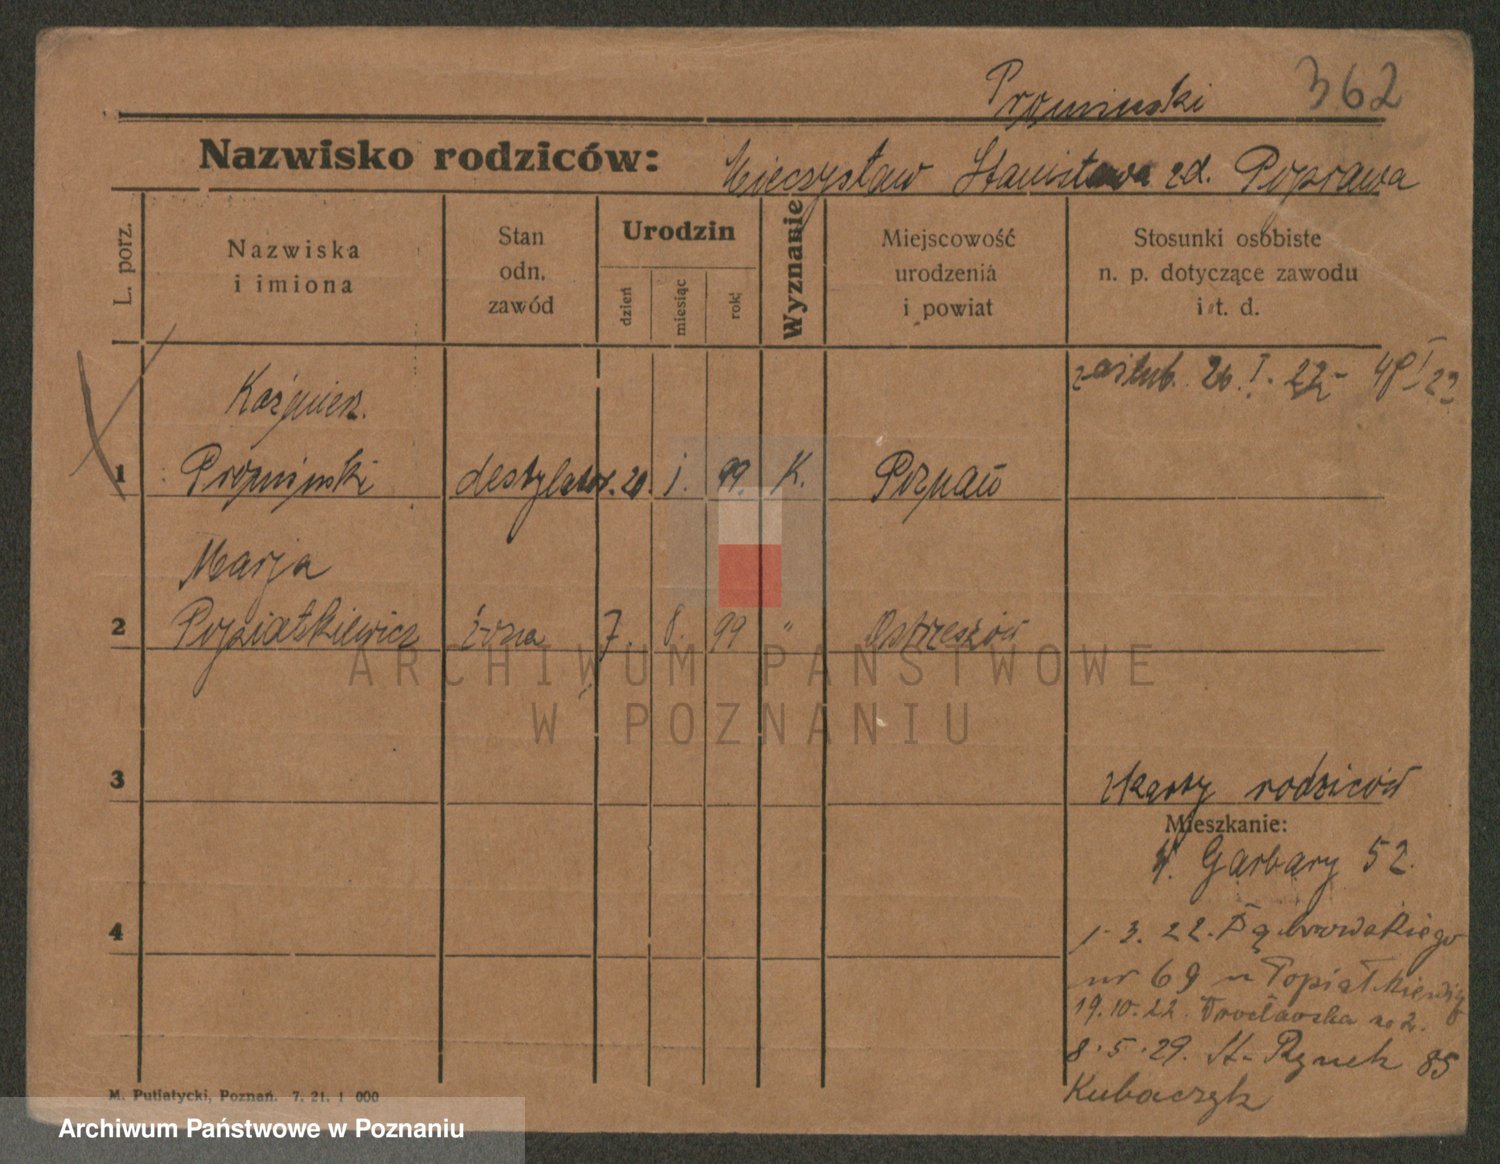 Promiński 362
Nazwisko rodziców: Mieczysław Stanisława zd. Poprawa
L. porz.
Nazwiska
i imiona
Stan
odn.
zawód
Urodzin
dzień
miesiąc
rok
Wyznanie
Miejscowość
urodzenia
i powiat
Stosunki osobiste
n. p. dotyczące zawodu
i t. d.
zaślub. 26. I. 22 - 48 I 22
Kaźmierz
1 Promiński destylator. 20. 1. 99. K. Poznań
Marja
2 Popiatkiewicz żona 7. 8. 99 " Ostrzeszów
3
z karty rodziców
Mieszkanie:
W. Garbary 52.
4
1. 3. 22. Dąbrowskiego
nr 69 u Popiatkiewicz
19.10.22. Wrocławska no 2.
8.5.29. St. Rynek 85
Kubaczyk
M. Putiatycki, Poznań. 7. 21. 1 000
ARCHIWUM PAŃSTWOWE
W POZNANIU
Archiwum Państwowe w Poznaniu